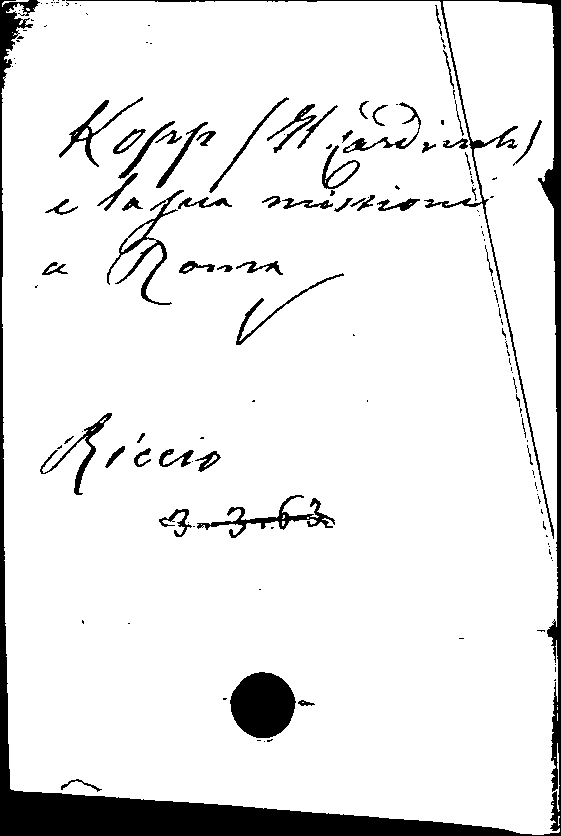 Kopp (Il Cardinale)
e la sua missione
a Roma
Riccio
3.3.63